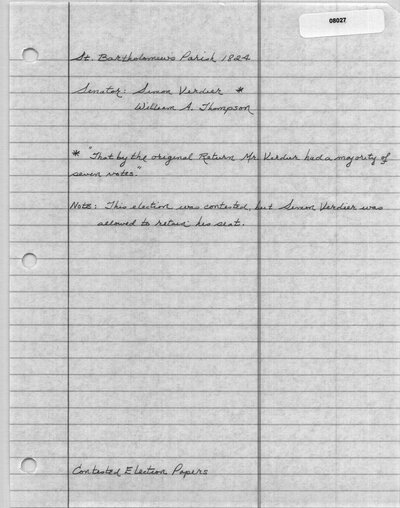 08027
St. Bartholomews Parish 1824
Senator: Simon Verdier *
William A. Thompson
* "That by the original Return Mr. Verdier had a majority of
seven votes."
Note: This election was contested, but Simon Verdier was
allowed to retain his seat.
Contested Election Papers